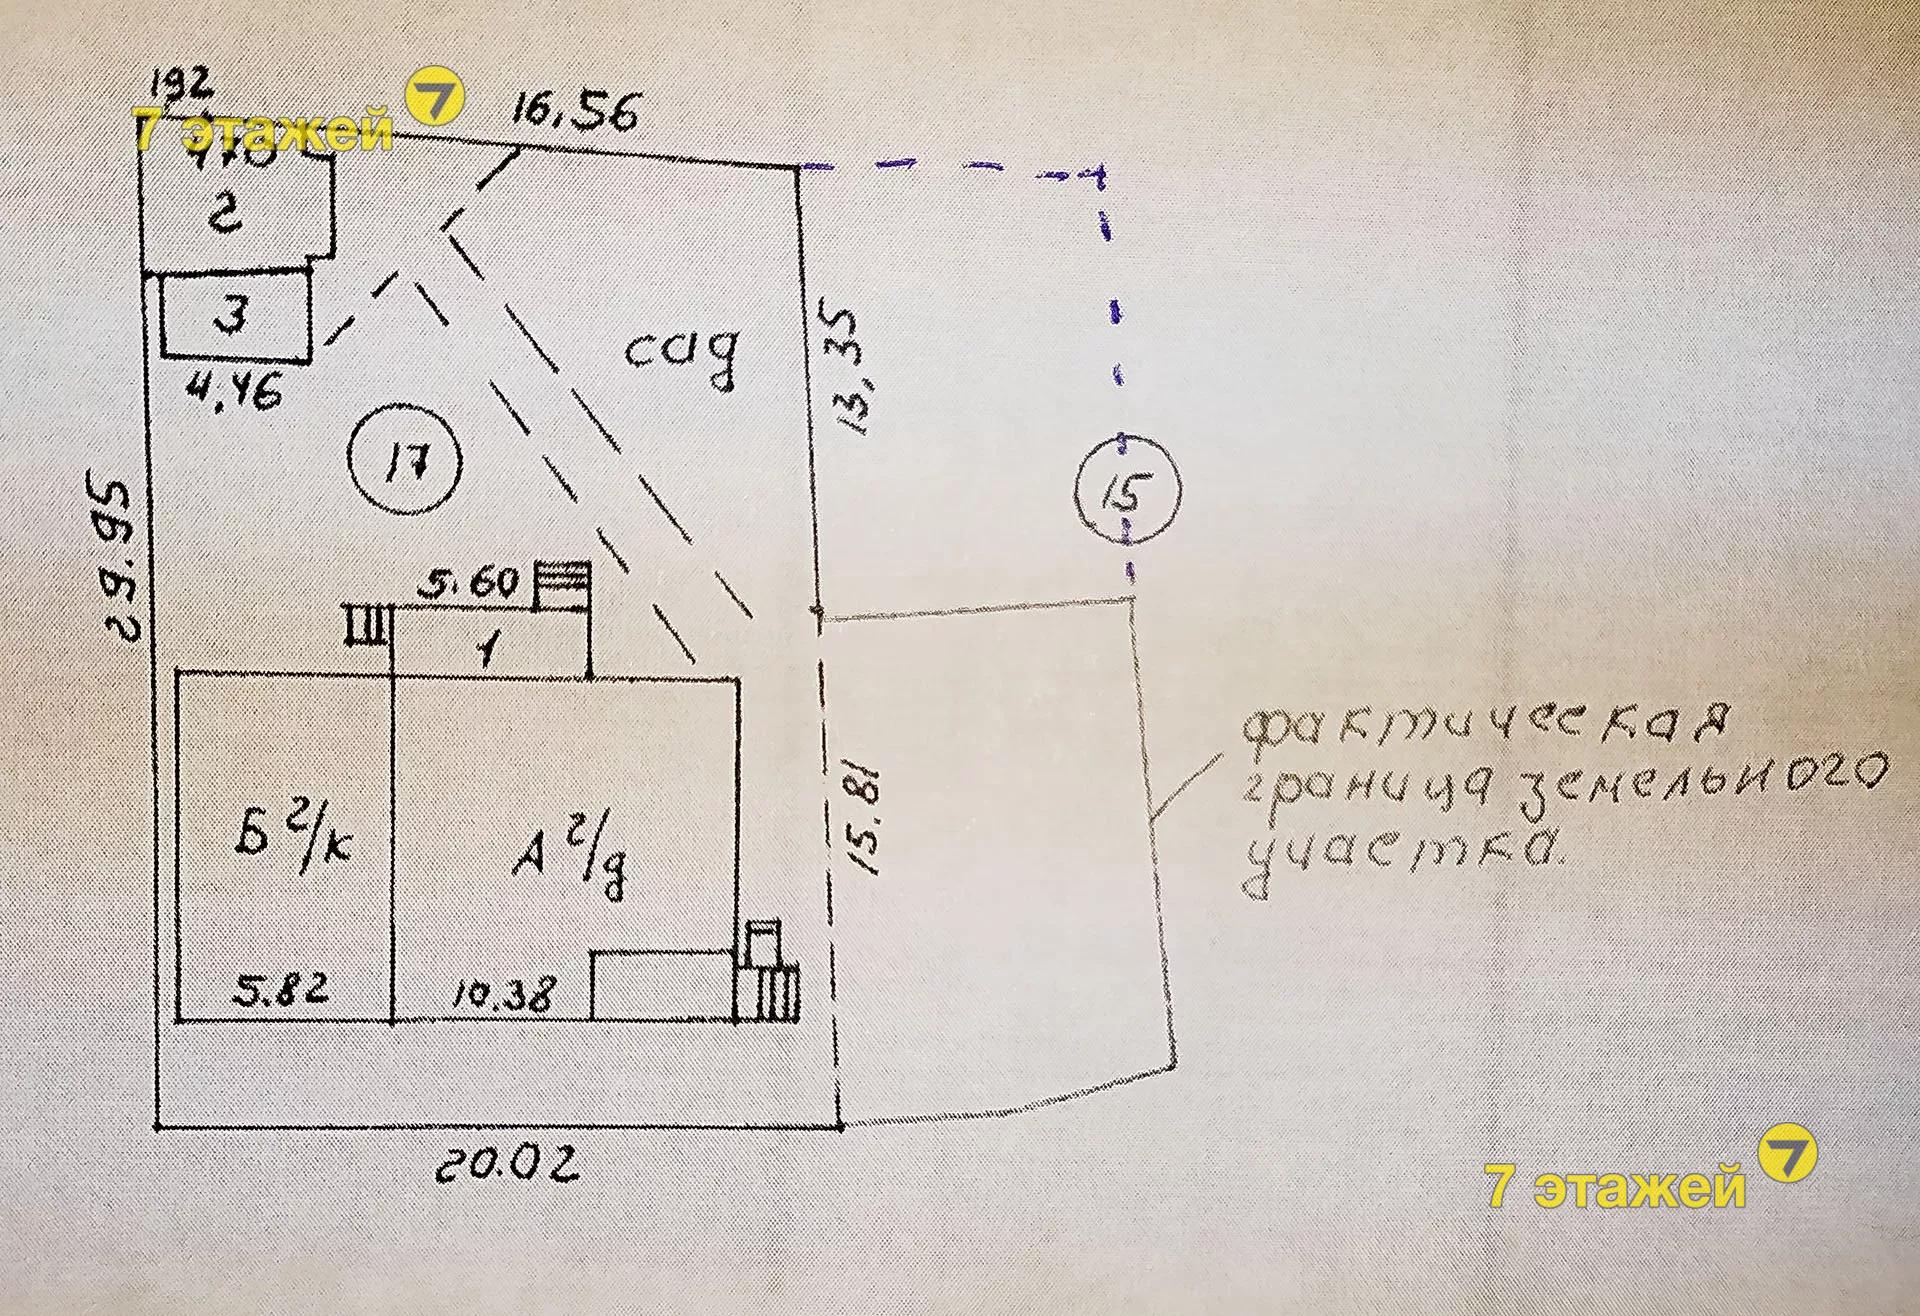 192
7 этажей 7
16,56
2
3
4,46
сад
13,35
17
15
29.95
5.60
1
Б 2/к
А 2/д
15.81
фактическая
граница земельного
участка.
5.82
10.38
20.02
7 этажей 7